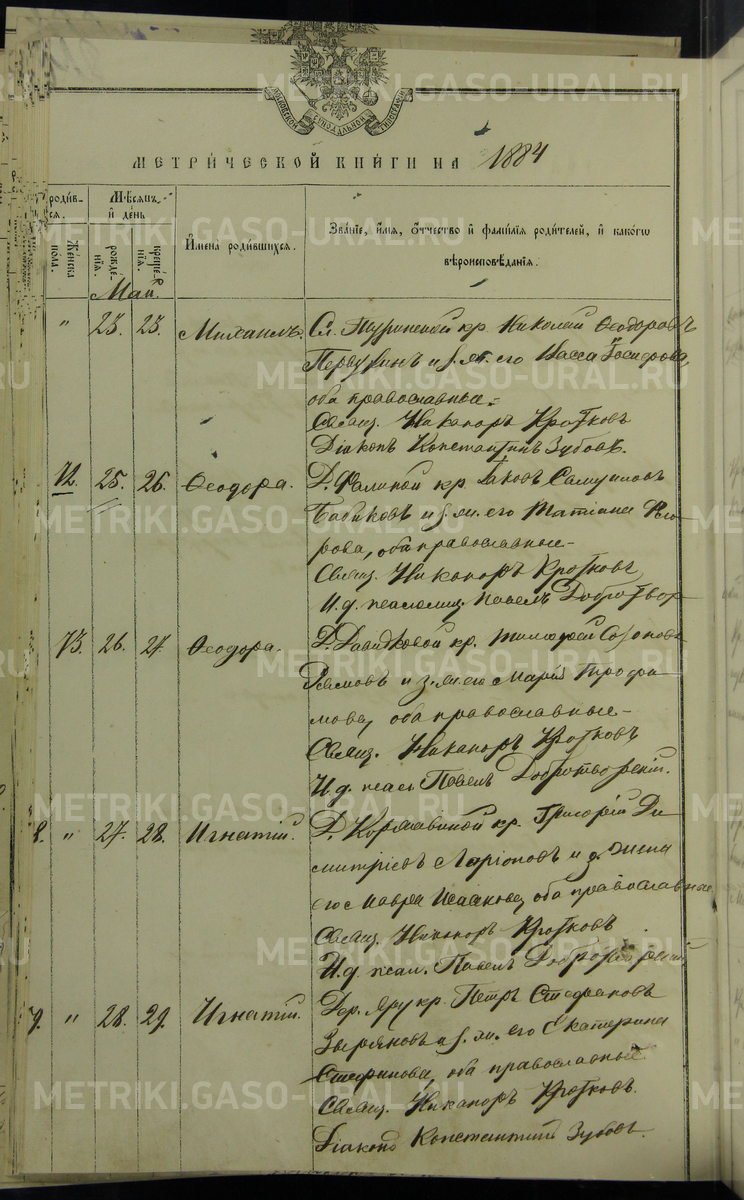 МЕТРИ́ЧЕСКОЙ КНИ́ГИ НА 1884
роди́вся.
Мѣсяцъ и де́нь
Же́нска пола.
рожде́нїя.
креще́нїя.
И҆мена̀ роди́вшихся.
Зва́нїе, и҆́мя, ѻ҆́тчество и҆ фами́лїя роди́телей, и҆ како́гѡ вѣроисповѣ́данїя.
Май.
" 23. 23. Михаилъ. Сл. Туринской кр. Николай Ѳеодоровъ
Первухинъ и з. ж. его Васса Іосифова,
оба православные.=
Свящ. Никаноръ Кротковъ
Діаконъ Константинъ Зубовъ.
72. 25. 26. Ѳеодора. Д. Фалиной кр. Іаковъ Самуиловъ
Бабиковъ и з. ж. его Татіана
рова, оба православные-
Свящ. Никаноръ Кротковъ
И. д. псаломщ. Павелъ Добротвор
73. 26. 27. Ѳеодора. Д. Давыдковой кр. Тимоѳей Созоновъ
и з. ж. его Марія Трофи
мова, оба православные-
Свящ. Никаноръ Кротковъ
И. д. псал. Павелъ Добротворскій.
8. " 27. 28. Игнатій. Д. Кормавиной кр. Григорій Ди
митріевъ Ларіоновъ и з. жена
его Мавра Исаакова, оба православные
Свящ. Никаноръ Кротковъ
И. д. псал. Павелъ Добротворскій
9. " 28. 29. Игнатій. Дер. Яру кр. Петръ Стефановъ
Зыряновъ и з. ж. его Екатерина
Стефанова, оба православные
Свящ. Никаноръ Кротковъ.
Діаконъ Константинъ Зубовъ.
METRIKI.GASO-URAL.RU